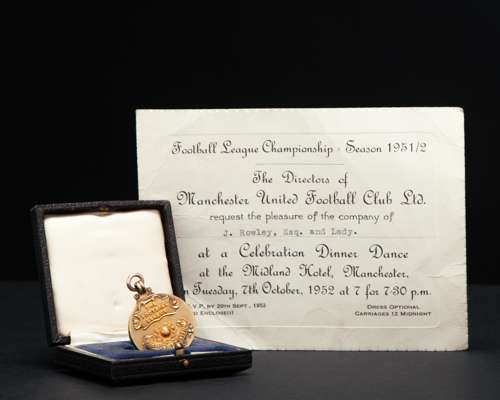 Football League Championship - Season 1951/2
The Directors of
Manchester United Football Club Ltd.
request the pleasure of the company of
J. Rowley, Esq. and Lady.
at a Celebration Dinner Dance
at the Midland Hotel, Manchester,
n Tuesday, 7th October, 1952 at 7 for 7-30 p.m.
V.P. BY 20TH SEPT., 1952 DRESS OPTIONAL
D ENCLOSED) CARRIAGES 12 MIDNIGHT